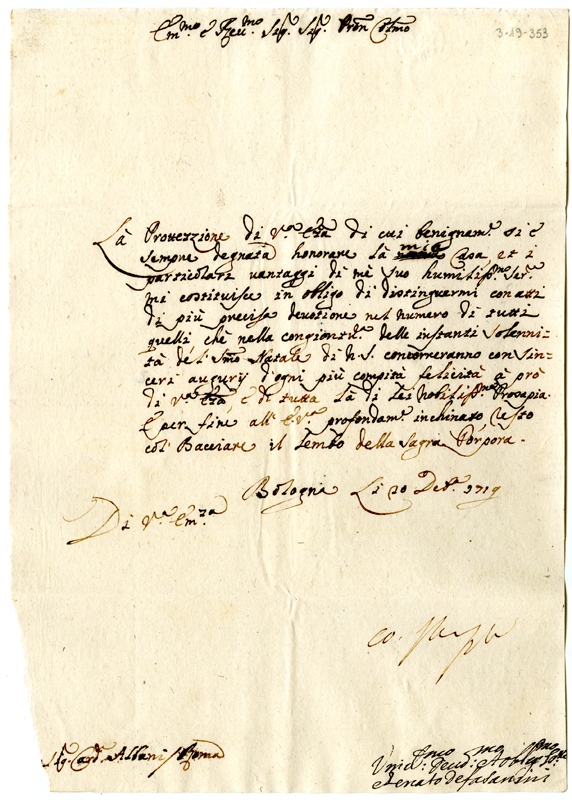 Em.mo e Rev.mo Sig. Sig. Pron Colmo
3-19-353
Là Protezzione di V.a Em̃a di cui benignam.e si è
sempre degnata honorare là mia Casa, et i
particolari vantaggi di mè suo humiliss.mo ser.e
mi costituisce in obligo di distinguermi con atti
di più precisa devotione nel numero di tutti
quelli chè nella congiont.a delle instanti solenni=
tà de'l S.mo Natale di N. S. concorreranno con sin=
ceri augurij d'ogni più compita felicità à prò
di V.a Em̃a, e di tutta là di Lei nobiliss.ma Prosapia.
E per fine all' E.V.a profondam.e inchinato resto
col' Bacciare il lembo della sagra Porpora.
Bologna Li 20 Dcb.e 1719
Di V.a Em.za
co.
Sig. Card. Albani / Roma
Um.o Dev.mo Oblig.mo
Renato de fasanini